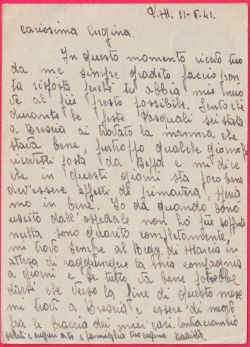 P.M. 11-5-41.
Carissima Cugina,
In questo momento ricevo tuo
da me sempre gradito faccio pron
la risposta perchè tu abbia mie nuo
ve al più presto possibile. Sento che
durante le feste pasquali sei stata
a Brescia ai trovato la mamma che
stava bene, purtroppo qualche giorno
ricevetti posta da e mi dice
che in questi giorni sta poco bene
avv'essere effetti di primavera, speria
mo in bene. Io da quando sono
uscito dall'ospedale non hò più sofferto
nulla sono guarito completamente,
mi trovo sempre al Regg. di Marcia in
attesa di raggiungere la mia compagnia
a giorni e se tutto va bene potrebbe
darsi che verso la fine di questo mese
mi trovi a Brescia e essere di nuovo
fra le braccia dei miei cari. Contraccambio
saluti e auguri a te e famiglia tuo cugino